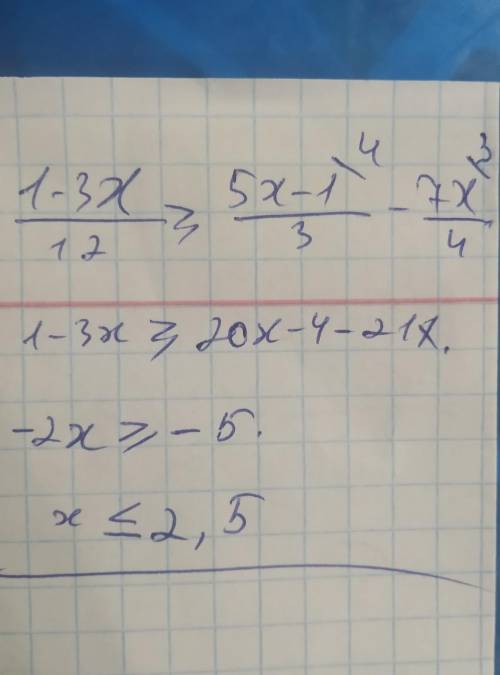 (1-3x)/12 ⩾ (5x-1)/3 \4 - 7x/4 \3
1-3x ⩾ 20x-4-21x.
-2x ⩾ -5.
x ≤ 2,5